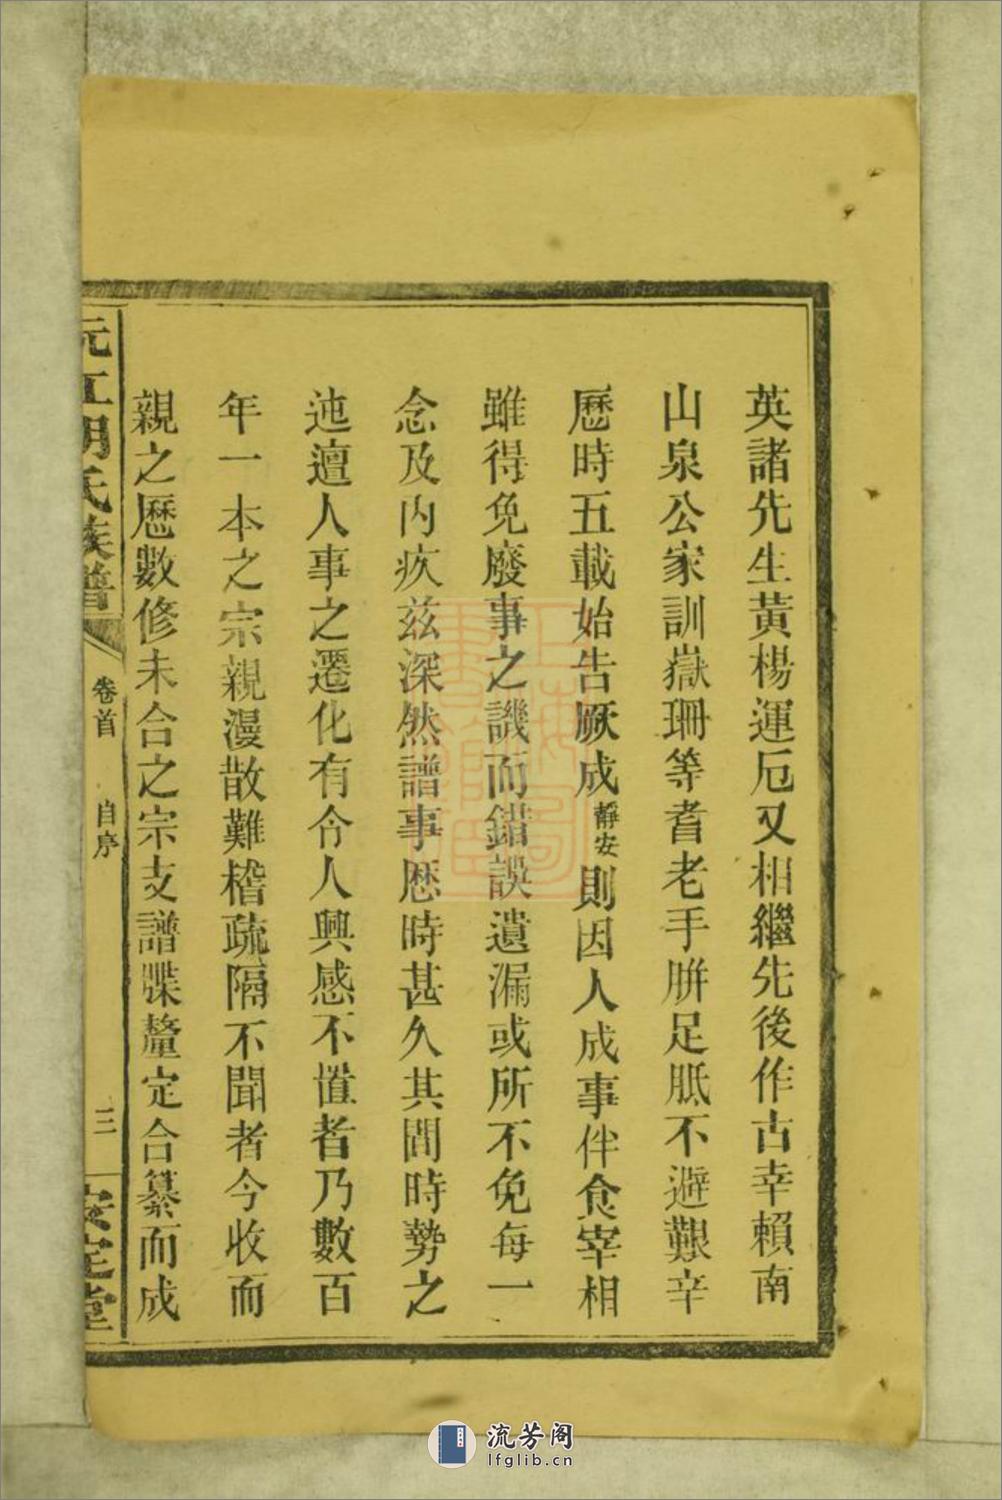 英諸先生黃楊運厄又相繼先後作古幸賴南
山泉公家訓嶽珊等耆老手胼足胝不避艱辛
歷時五載始告厥成靜安則因人成事伴食宰相
雖得免廢事之譏而錯誤遺漏或所不免每一
念及內疚茲深然譜事歷時甚久其間時勢之
迍邅人事之遷化有令人興感不置者乃數百
年一本之宗親漫散難稽疏隔不聞者今收而
親之歷數修未合之宗支譜牒釐定合纂而成
沅江胡氏族譜
卷首
自序
三
安定堂
上海圖書館藏
流芳阁
lfglib.cn